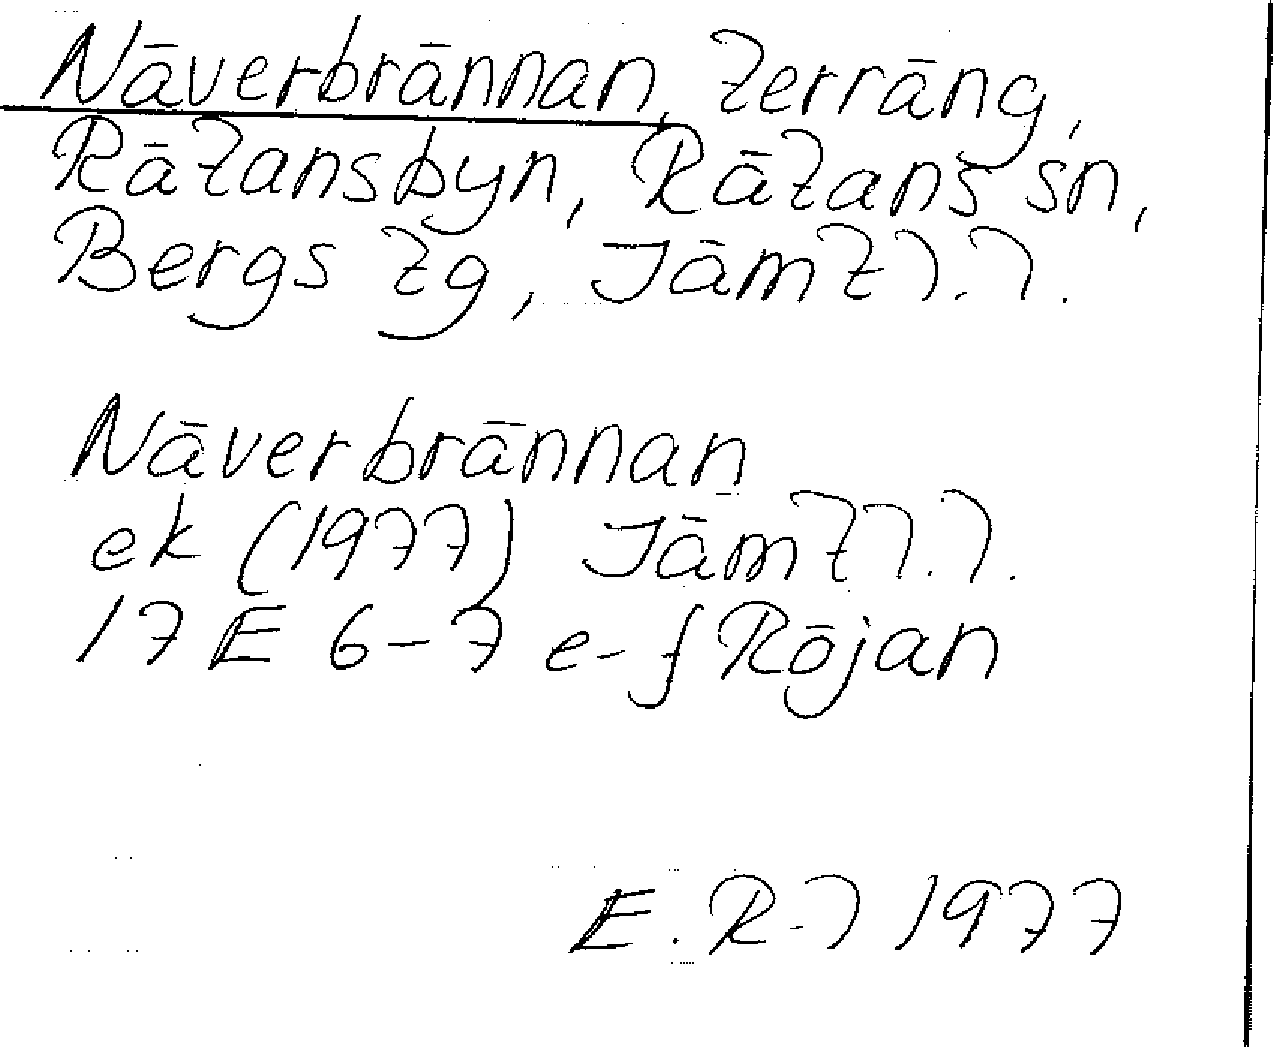 Näverbrännan, terräng,
Rätansbyn, Rätans sn,
Bergs tg, Jämtl.l.
Näverbrännan
ek (1977) Jämtl.l.
17 E 6-7 e-f Röjan
E.R-l 1977